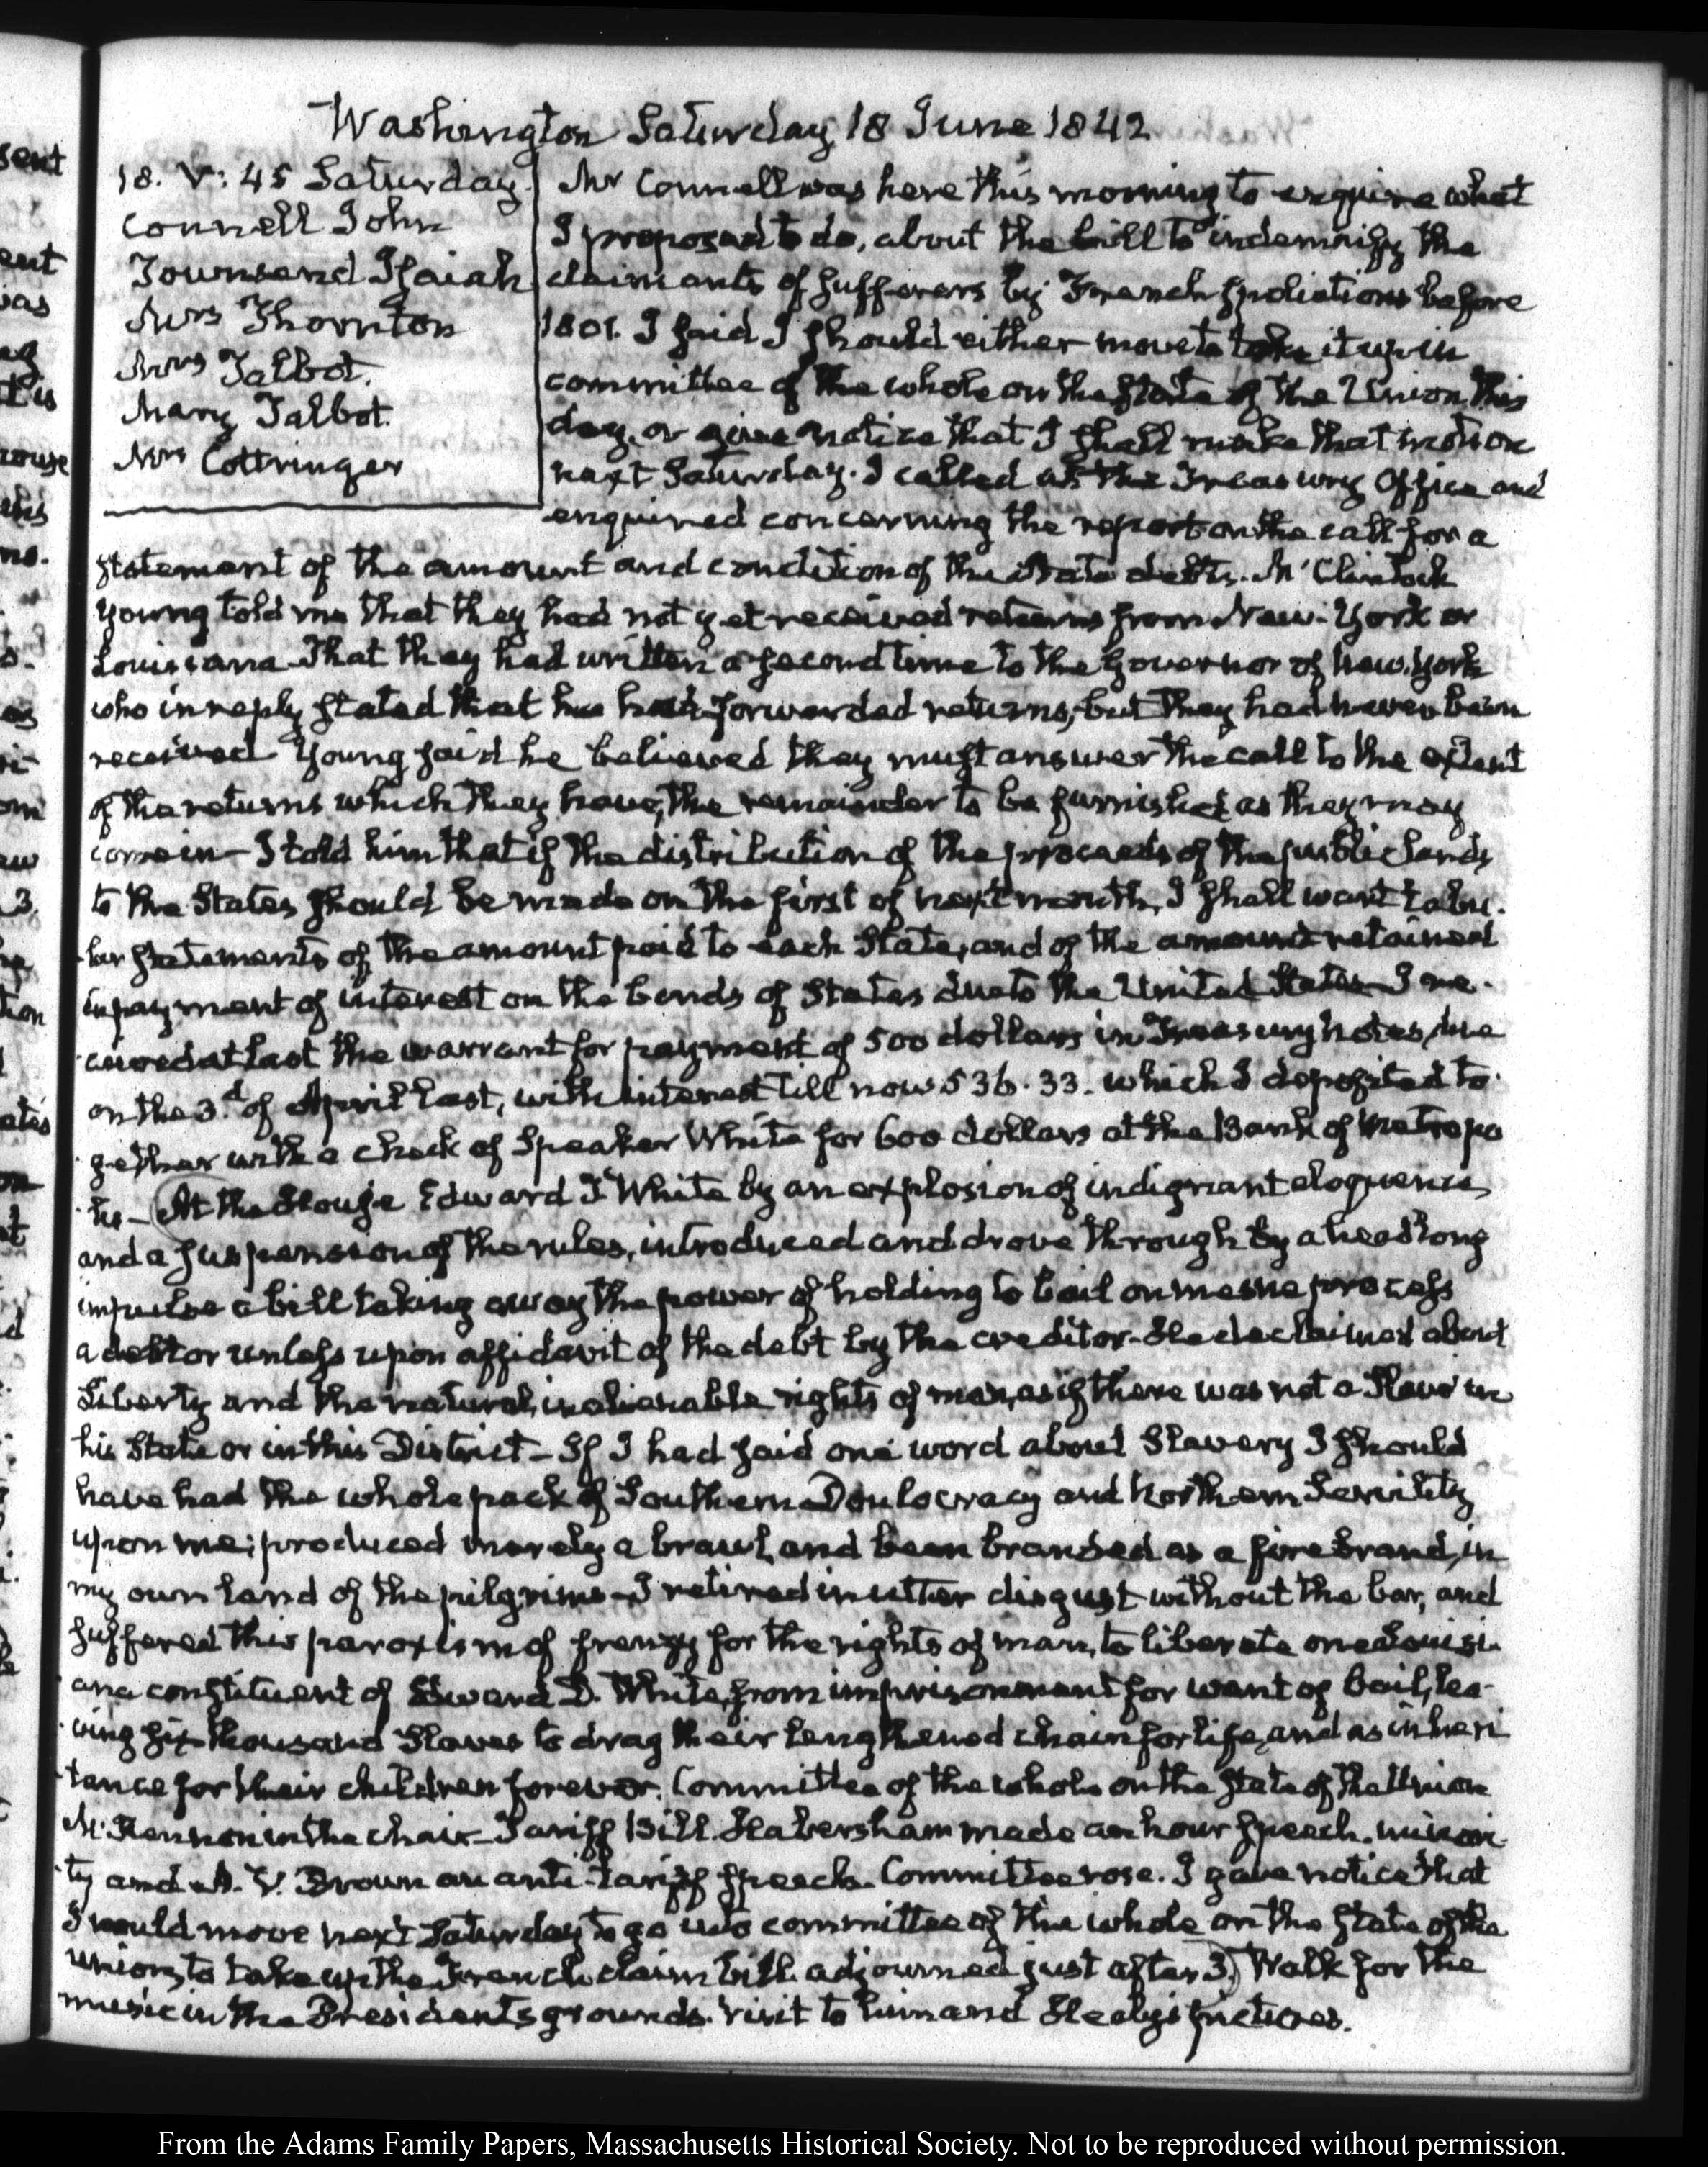 Washington Saturday 18 June 1842
18. V: 45 Saturday.
Connell John
Townsend Isaiah
Mrs Thornton
Mrs Talbot.
Mary Talbot.
Mrs Cottringer
Mr Connell was here this morning to enquire what
I proposed to do, about the bill to indemnify the
claimants of sufferers by French spoliations before
1801. I said I should either move to take it up in
committee of the whole on the state of the Union this
day, or give notice that I shall make that motion
next Saturday. I called at the Treasury Office and
enquired concerning the report on the call for a
statement of the amount and condition of the State debts. McClintock
Young told me that they had not yet received returns from New-York or
Louisiana. That they had written a second time to the Governor of New-York
who in reply stated that he had forwarded returns, but they had never been
received Young said he believed they must answer the call to the extent
of the returns which they have, the remainder to be furnished as they may
come in— I told him that if the distribution of the proceeds of the public lands
to the States should be made on the first of next month, I shall want tabu-
-lar statements of the amount paid to each State, and of the amount retained
in payment of interest on the bonds of States due to the United States— I re-
-ceived at last the warrant for payment of 500 dollars in Treasury notes, due
on the 3.d of April last, with interest till now 536.33. which I deposited to-
-gether with a check of Speaker White for 600 dollars at the Bank of Metropo
-lis— (At the House Edward D White by an explosion of indignant eloquence
and a suspension of the rules, introduced and drove through by a headlong
impulse a bill taking away the power of holding to bail on mesne process
a debtor unless upon affidavit of the debt by the creditor. He declaimed about
Liberty and the natural, inalienable rights of man, as if there was not a Slave in
his State or in this District— If I had said one word about Slavery I should
have had the whole pack of Southern Doulocracy and Northern Servility
upon me; produced merely a brawl, and been branded as a firebrand, in
my own land of the pilgrims— I retired in utter disgust without the bar, and
suffered this paroxism of frenzy for the rights of man, to liberate one Louisi-
-ana constituent of Edward D. White, from imprisonment for want of bail, lea-
-ving six thousand Slaves to drag their lengthened chain for life, and as inheri
-tance for their children forever. Committee of the whole on the state of the Union
McKennon in the chair— Tariff Bill. Habersham made an hour speech. minori-
-ty and A. V. Brown an anti-tariff speech. Committee rose. I gave notice that
I would move next Saturday to go into committee of the whole on the state of the
Union, to take up the French claim bill. adjourned just after 3.) Walk for the
music in the President's grounds. Visit to him and Healy's pictures.
From the Adams Family Papers, Massachusetts Historical Society. Not to be reproduced without permission.